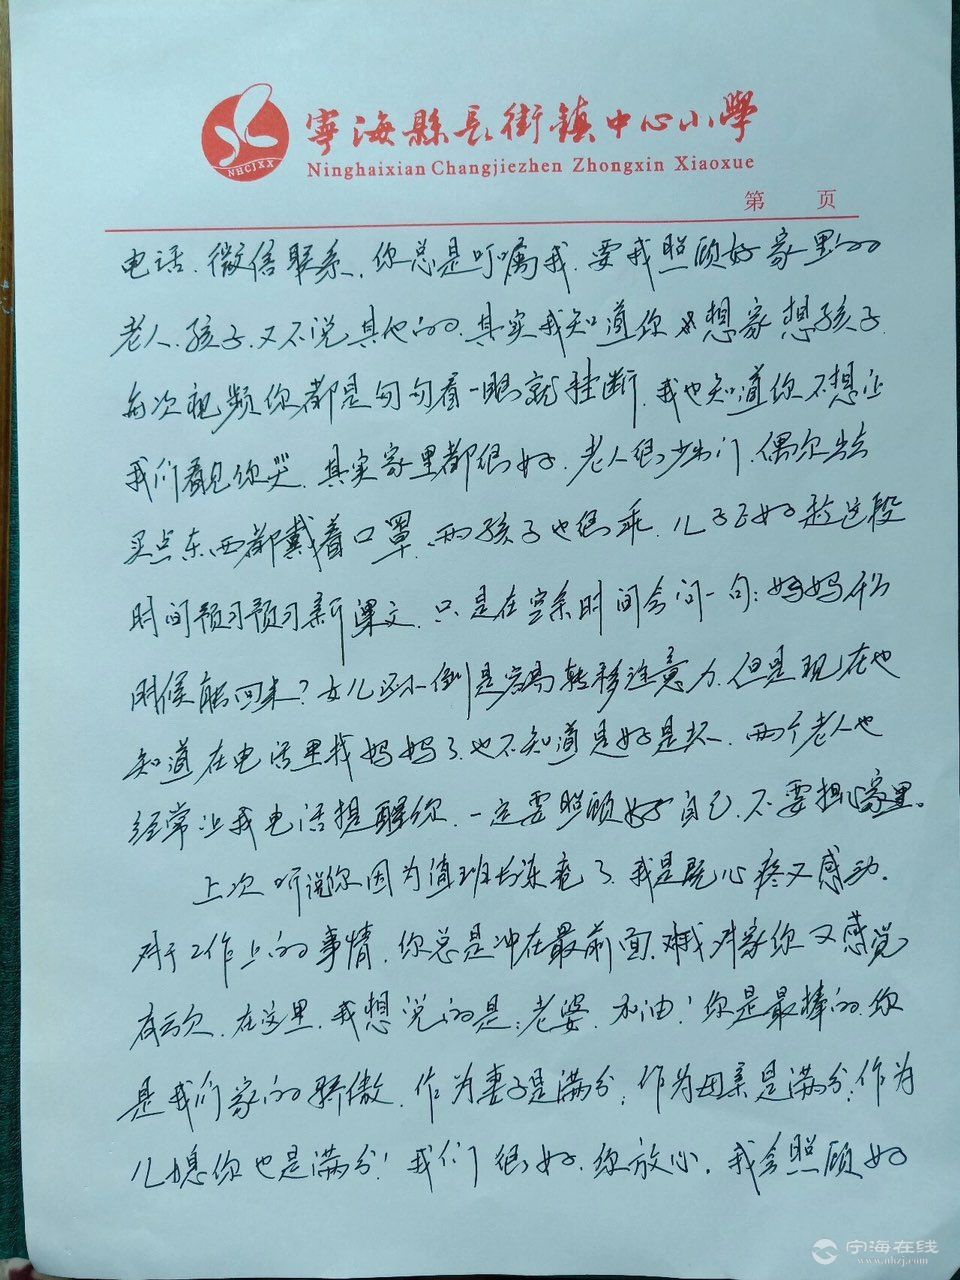 寧海縣長街鎮中心小學
NHCJXX
Ninghaixian Changjiezhen Zhongxin Xiaoxue
第 页
电话、微信联系，你总是叮嘱我，要我照顾好家里的
老人、孩子，又不说其他的，其实我知道你想家想孩子，
每次视频你都是匆匆看一眼就挂断，我也知道你不想让
我们看见你哭，其实家里都很好，老人很少出门，偶尔出去
买点东西都戴着口罩，两孩子也很乖，儿子正好趁这段
时间预习预习新课文，只是在空余时间会问一句：妈妈什么
时候能回来？女儿还小倒是容易转移注意力，但是现在也
知道在电话里找妈妈了，也不知道是好是坏，两个老人也
经常让我电话提醒你，一定要照顾好自己，不要担心家里。
上次听说你因为值班长冻疮了，我是既心疼又感动，
对于工作上的事情，你总是冲在最前面，对家你又感觉
有亏欠，在这里，我想说的是：老婆，加油！你是最棒的，你
是我们家的骄傲，作为妻子是满分，作为母亲是满分，作为
儿媳你也是满分！我们很好，你放心，我会照顾好
宁海在线
www.nhzj.com